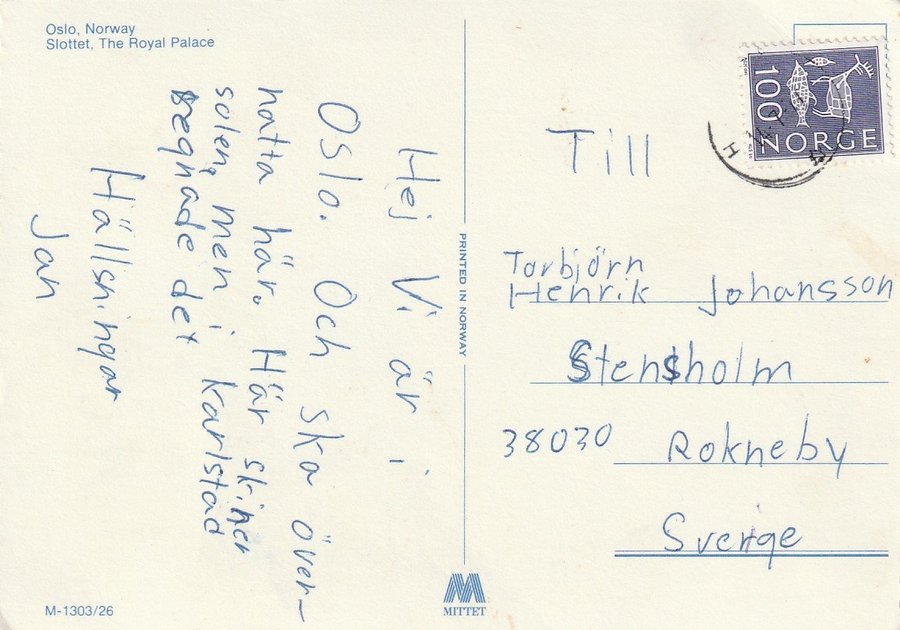 Oslo, Norway
Slottet, The Royal Palace
Hej Vi är i
Oslo. Och ska över-
natta här. Här skiner
solen, men i Karlstad
regnade det
Hällsningar
Jan
PRINTED IN NORWAY
M-1303/26
MITTET
100
NORGE
Till
Torbjörn
Henrik Johansson
Stensholm
38030 Rokneby
Sverige